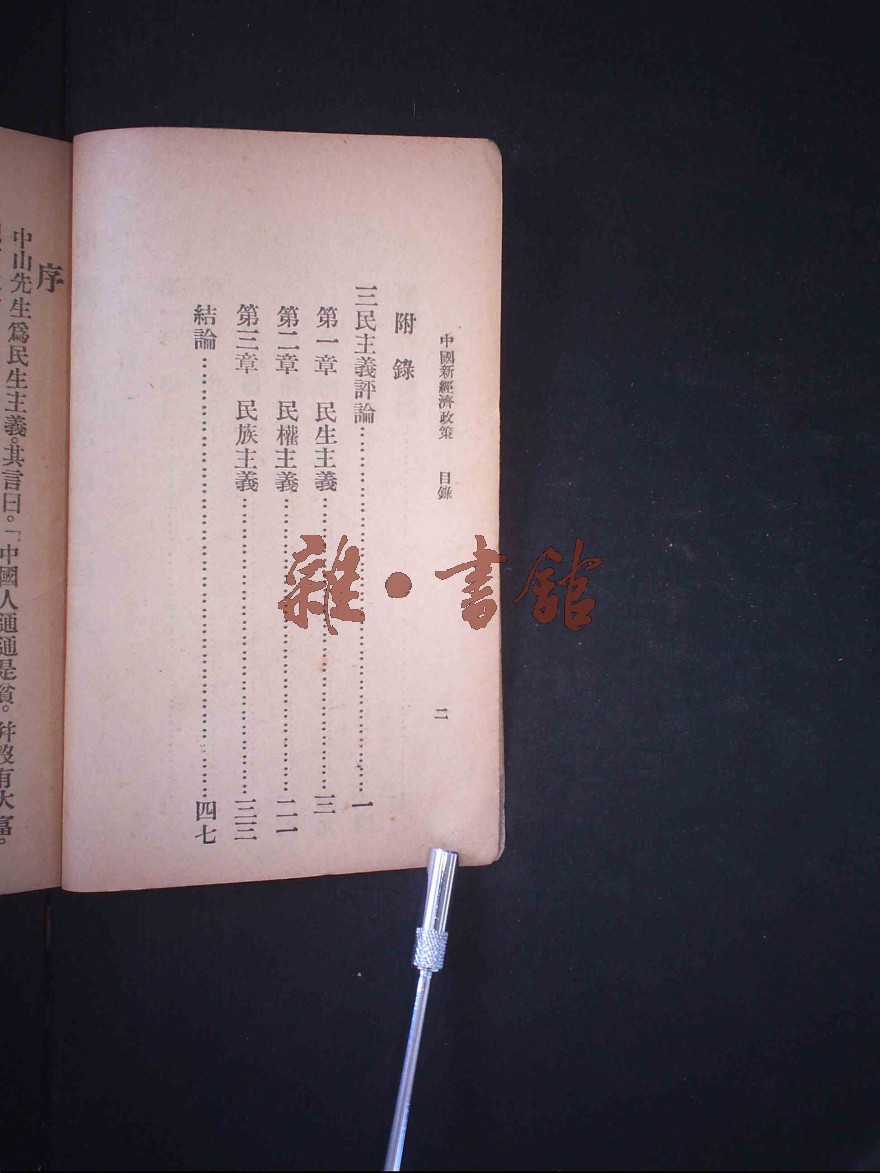 中國新經濟政策　目錄
二
附錄
三民主義評論……一
第一章　民生主義……三
第二章　民權主義……二一
第三章　民族主義……三三
結論……四七
雜·書館
序
中山先生爲民生主義。其言曰。「中國人通通是貧。幷沒有大富。